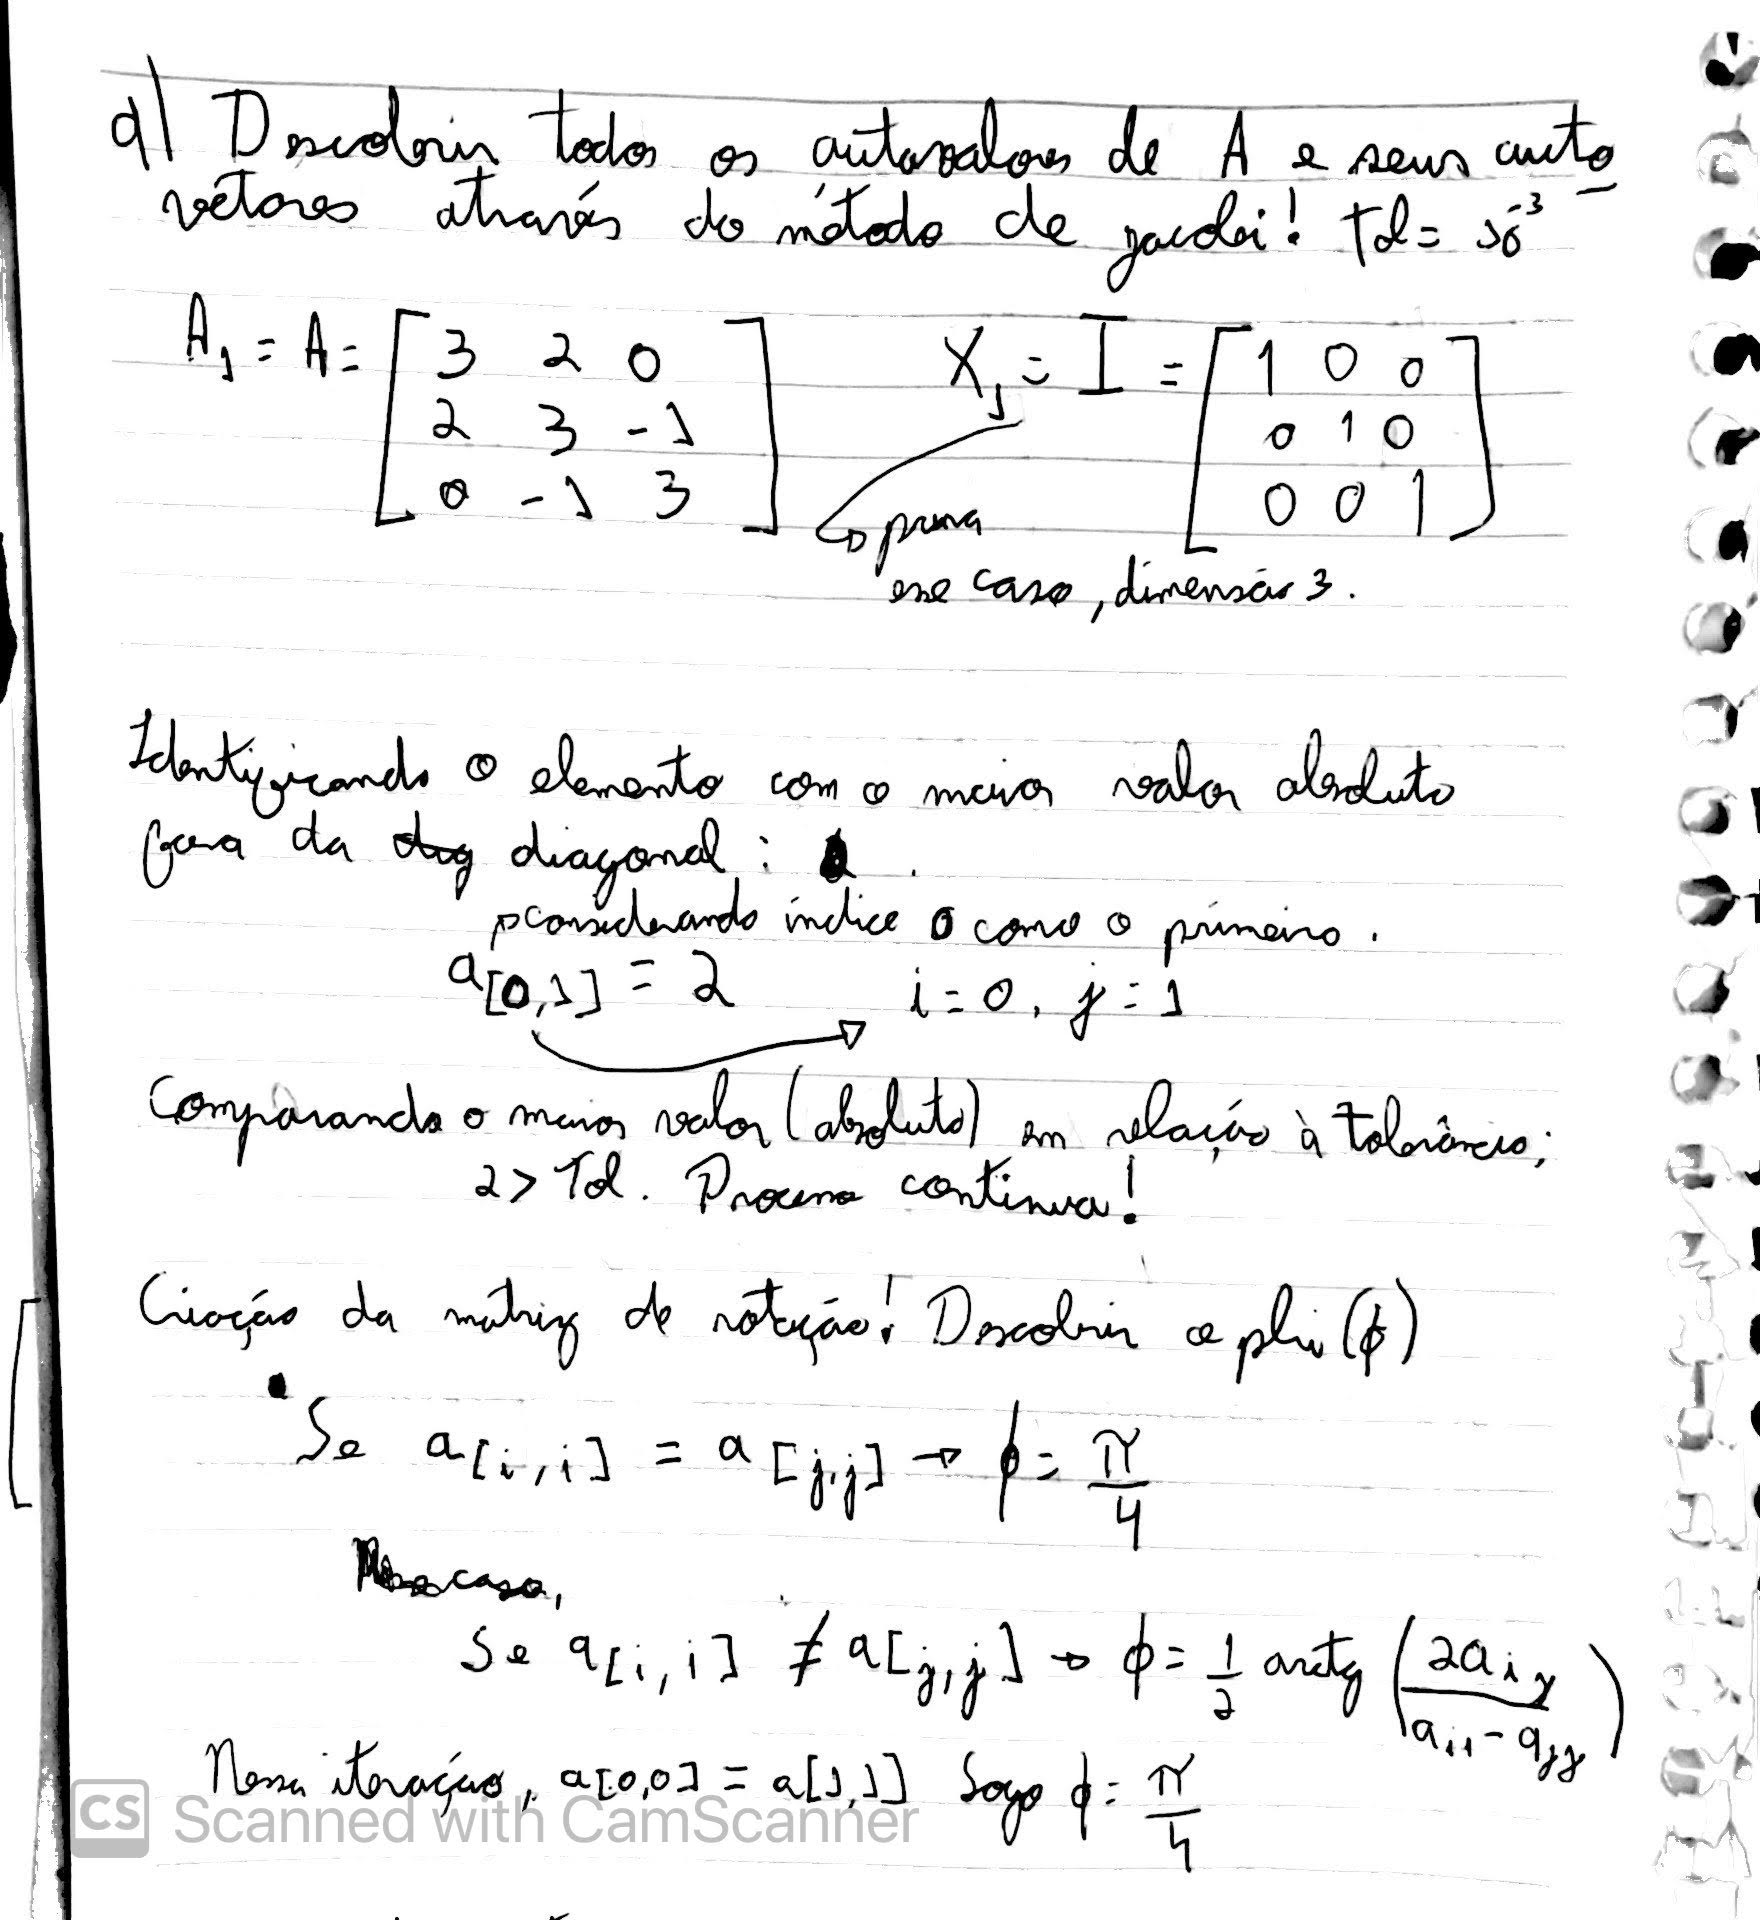 a) Descobrir todos os autovalores de A e seus auto
vetores através do método de jacobi! Tol = 10^-3
A1 = A = [3 2 0 X1 = I = [1 0 0
2 3 -1 0 1 0
0 -1 3] 0 0 1]
→ para
esse caso, dimensão 3.
Identificando o elemento com o maior valor absoluto
fora da diagonal:
→ considerando índice 0 como o primeiro.
a[0,1] = 2 i = 0, j = 1
Comparando o maior valor (absoluto) em relação à tolerância;
2 > Tol. Processo continua!
Criação da matriz de rotação! Descobrir o phi (ϕ)
• Se a[i,i] = a[j,j] → ϕ = π/4
caso,
Se a[i,i] ≠ a[j,j] → ϕ = 1/2 arctg (2aij / aii - ajj)
Nessa iteração, a[0,0] = a[1,1] Logo ϕ = π/4
CS Scanned with CamScanner